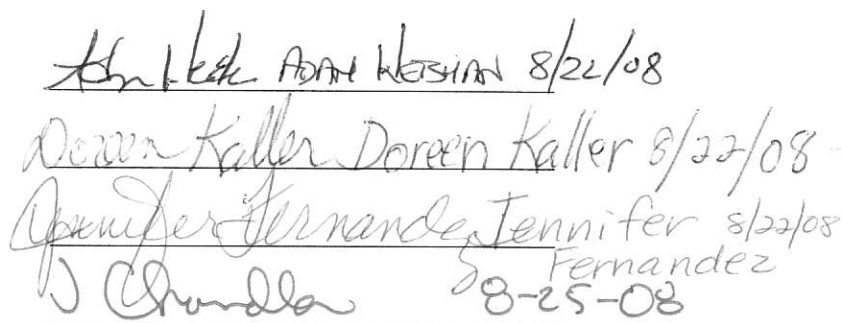 ADAM 8/22/08
Doreen Kaller Doreen Kaller 8/22/08
Jennifer Fernandez Jennifer 8/22/08
Fernandez
J Chandler 8-25-08